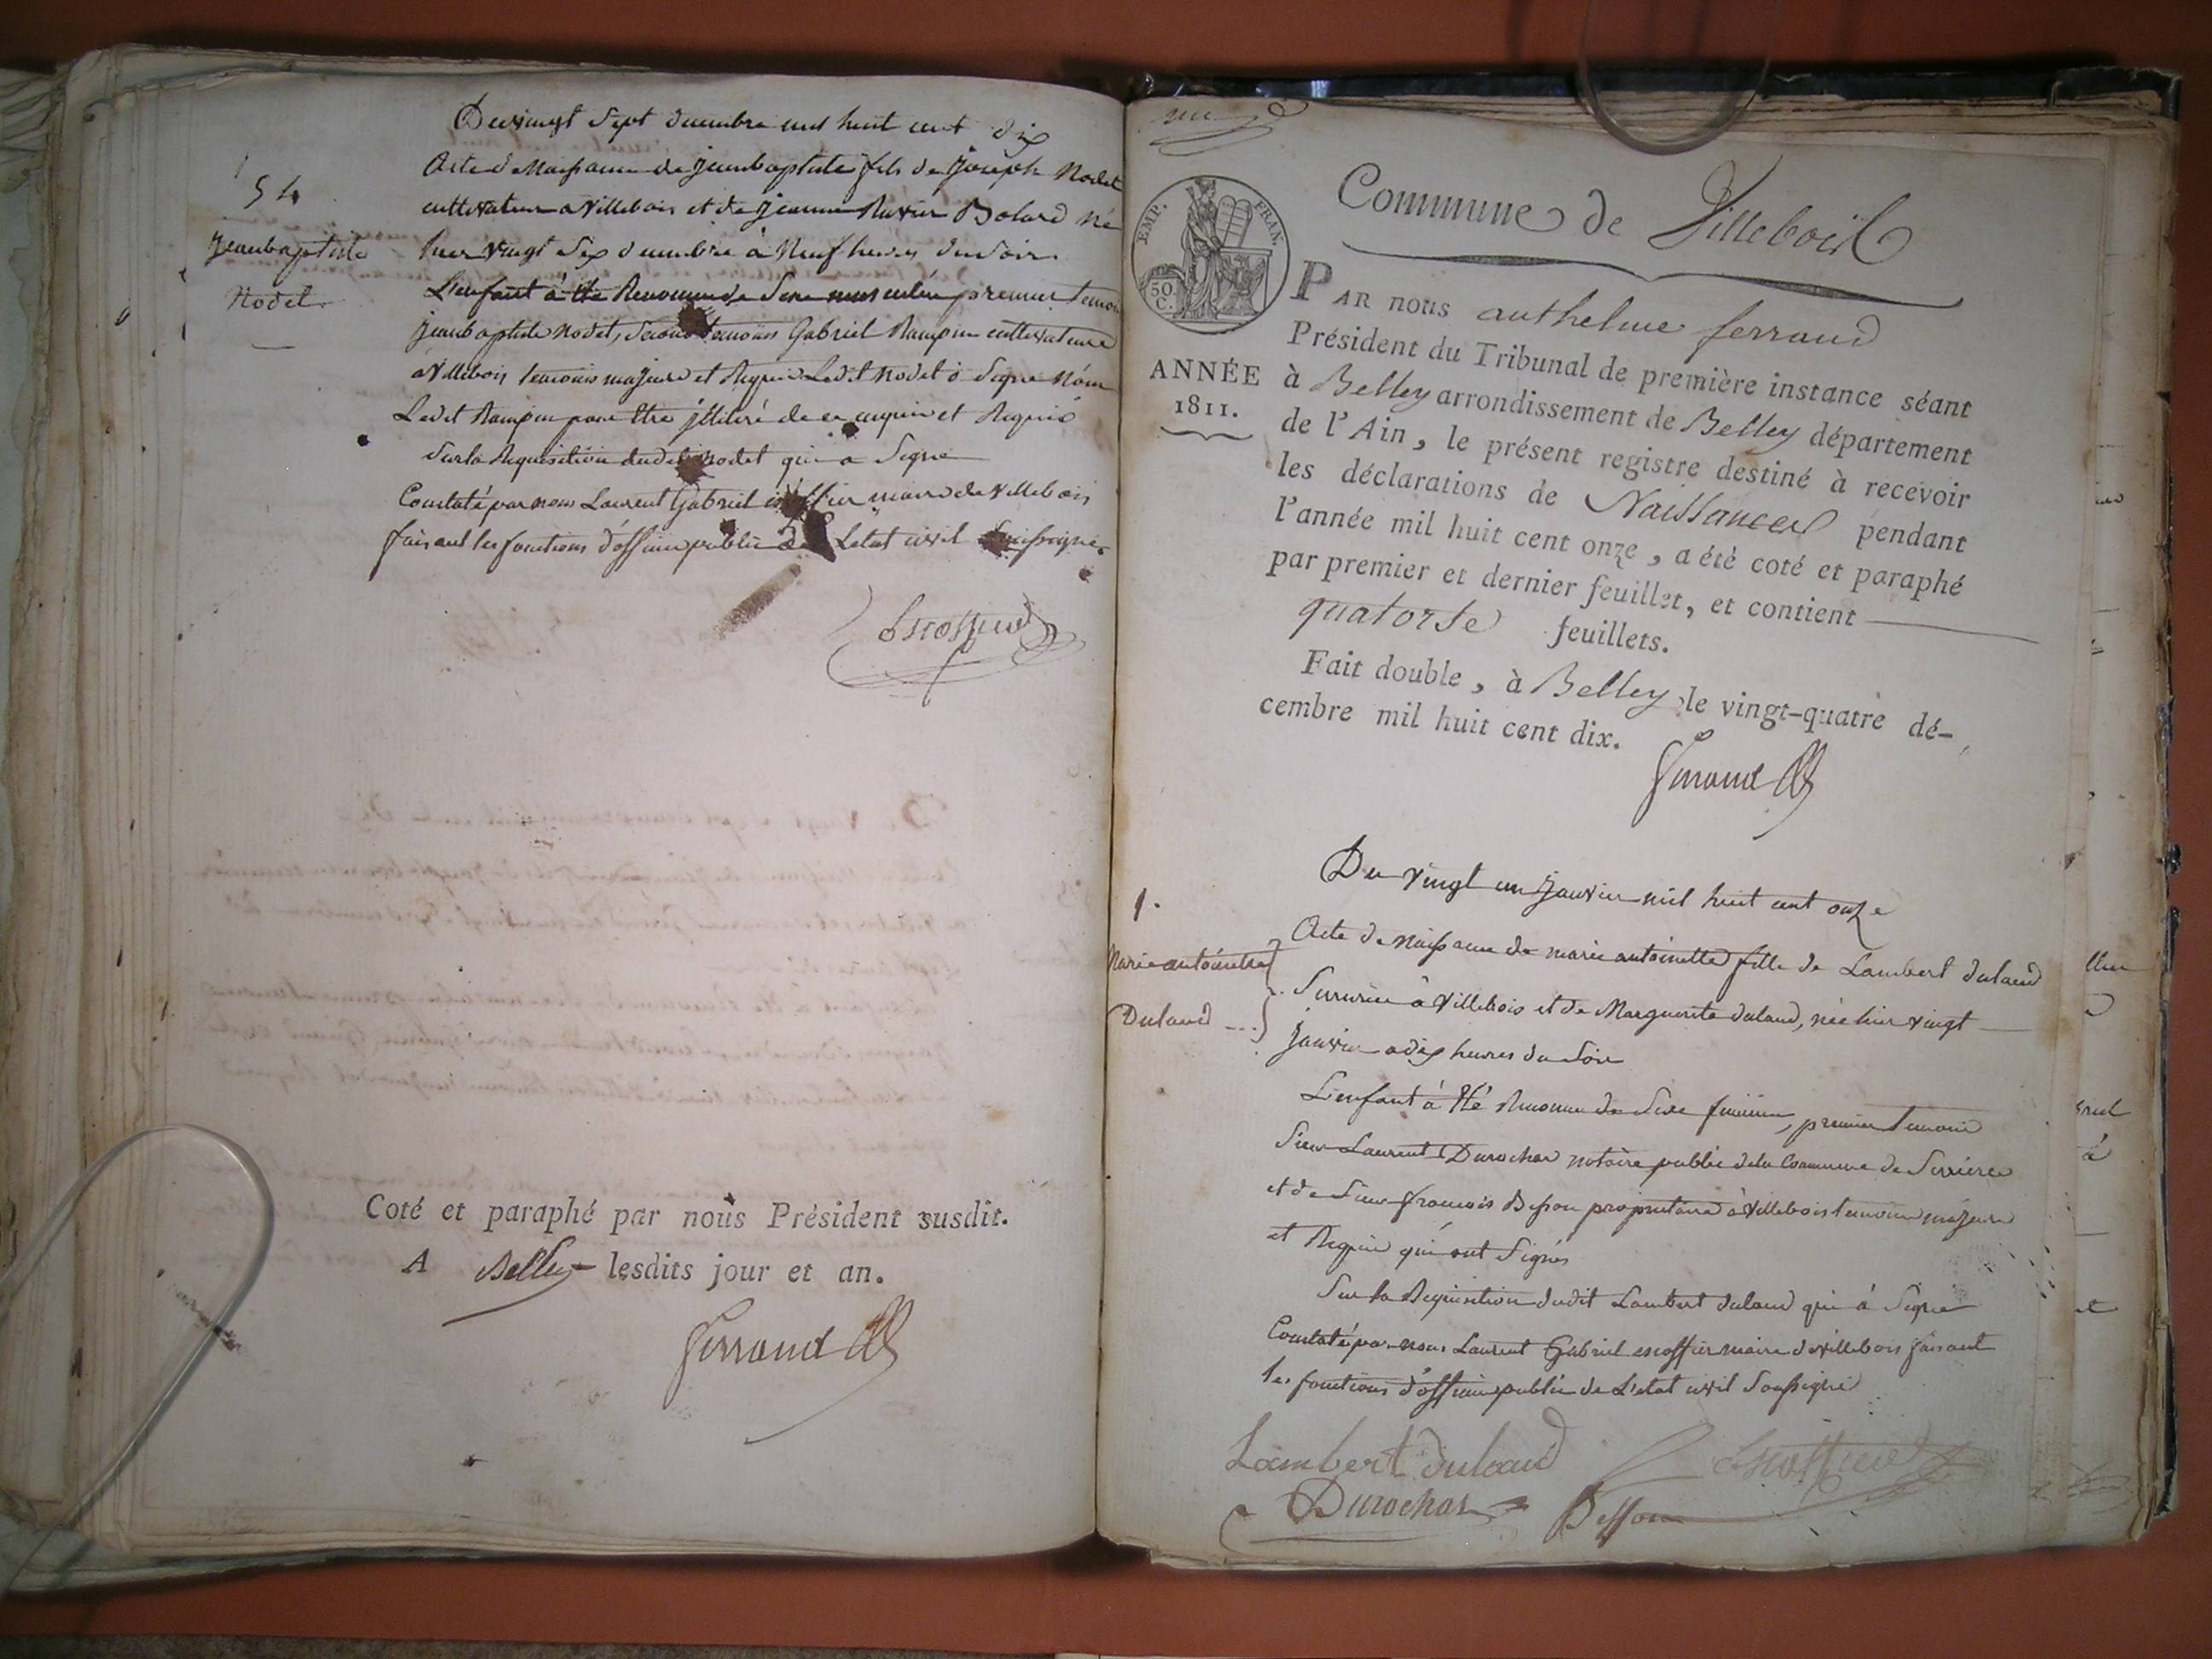 Du vingt Sept decembre mil huit cent dix
54
Jeanbaptiste
Nodet
Acte de Naissance de Jeanbaptiste fils de Joseph Nodet
cultivateur a Villebois et de Jeanne Ravier Bolard né
hier vingt Six decembre à Neuf heures du Soir.
L'enfant à été Reconnu de Sexe masculin premier temoin
Jeanbaptiste Nodet, Second temoins Gabriel Rampin cultivateurs
à Villebois temoins majeurs et Requis Ledit Nodet à Signé Non
Ledit Rampin pour être illiteré de ce enquis et Requis
Sur la Requisition dudit Nodet qui a Signé
Constaté par nous Laurent Gabriel escoffier maire de Villebois
faisant les fonctions d'officier public de Letat civil Soussigné.
Escoffier
Coté et paraphé par nous Président susdit.
A Belley lesdits jour et an.
Ferrand
EMP. FRAN.
50 C.
ANNÉE
1811.
Commune de Villebois
PAR nous anthelme ferrand
Président du Tribunal de première instance séant
à Belley arrondissement de Belley département
de l'Ain, le présent registre destiné à recevoir
les déclarations de Naissances pendant
l'année mil huit cent onze, a été coté et paraphé
par premier et dernier feuillet, et contient
quatorse feuillets.
Fait double, à Belley le vingt-quatre dé-
cembre mil huit cent dix.
Ferrand
1.
Marie antoinette
Dulaud
Du vingt un Janvier mil huit cent onze
Acte de Naissance de marie antoinette fille de Lambert dulaud
Serrurier à Villebois et de Marguerite dulaud, née hier vingt
Janvier a dix heures du Soir
L'enfant à été Reconnu de Sexe feminin, premier temoin
Sieur Laurent Durochat notaire public de la Commune de Serriere
et de Sieur francois Besson proprietaire à Villebois temoins majeurs
et Requis qui ont Signés
Sur la Requisition dudit Lambert dulaud qui à Signé
Constaté par nous Laurent Gabriel escoffier maire de villebois faisant
les fonctions d'officier public de L'etat civil Soussigné
Lambert dulaud
Escoffier
Durochat
Besson